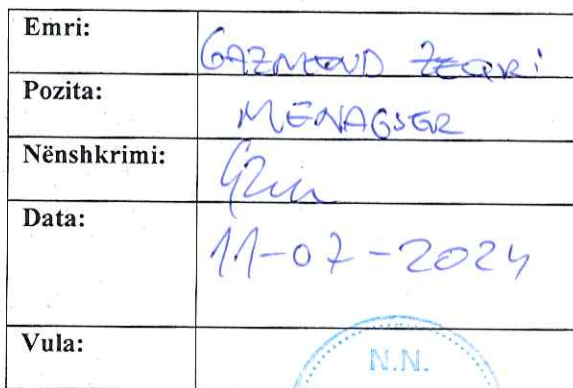 Emri: GAZMEND ZEQIRI
Pozita: MENAGJER
Nënshkrimi:
Data: 11-07-2024
Vula: N.N.